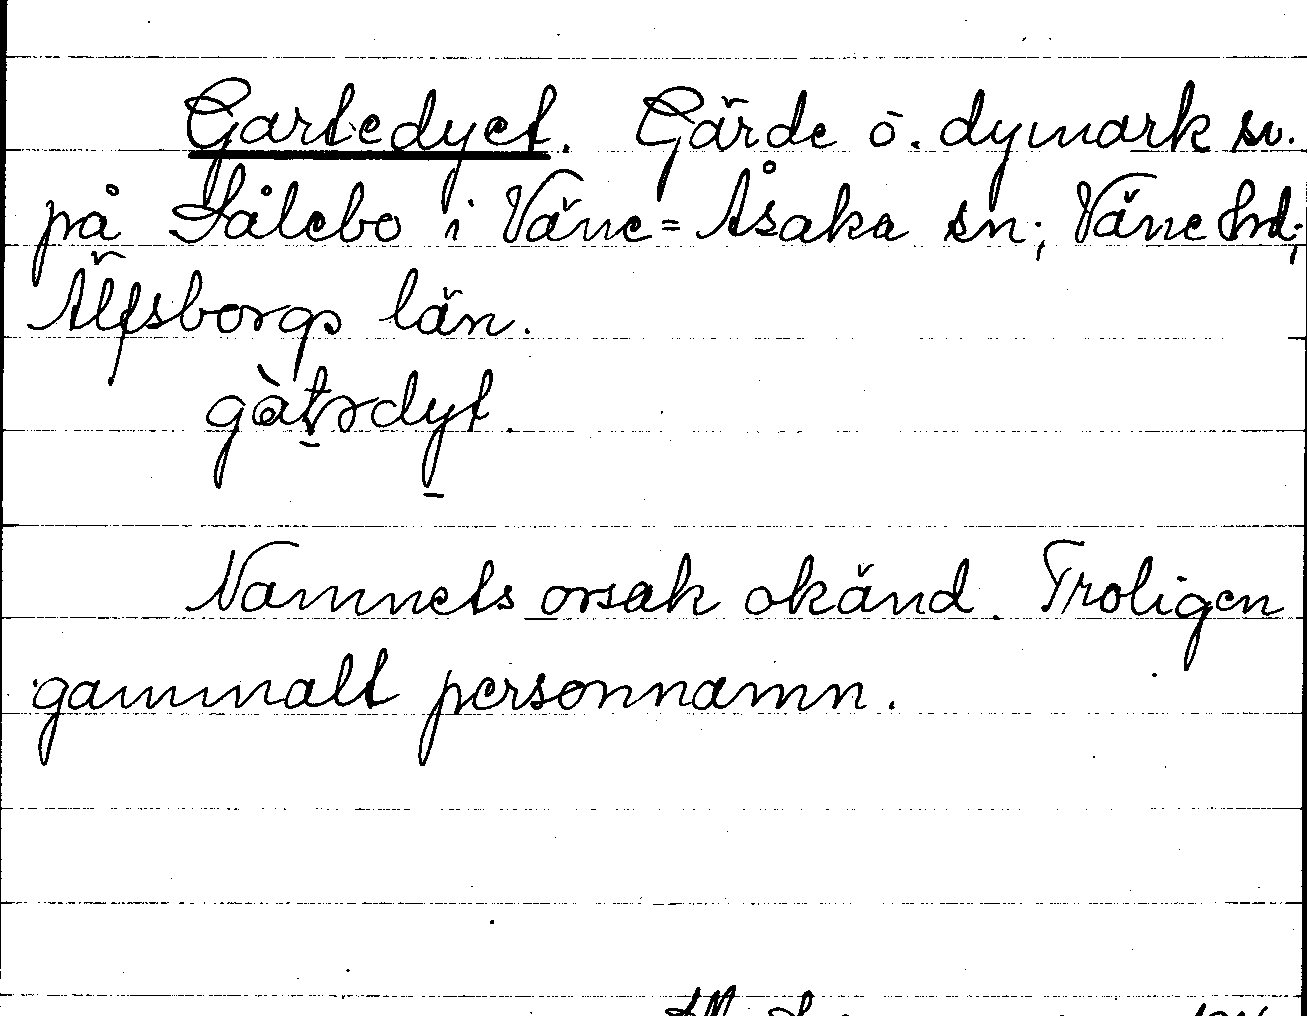 Gartedyet. Gärde o. dymark sv.
på Sålebo i Väne=Åsaka sn; Väne hd;
Älfsborgs län.
gàtrdyt.
Namnets orsak okänd. Troligen
gammalt personnamn.